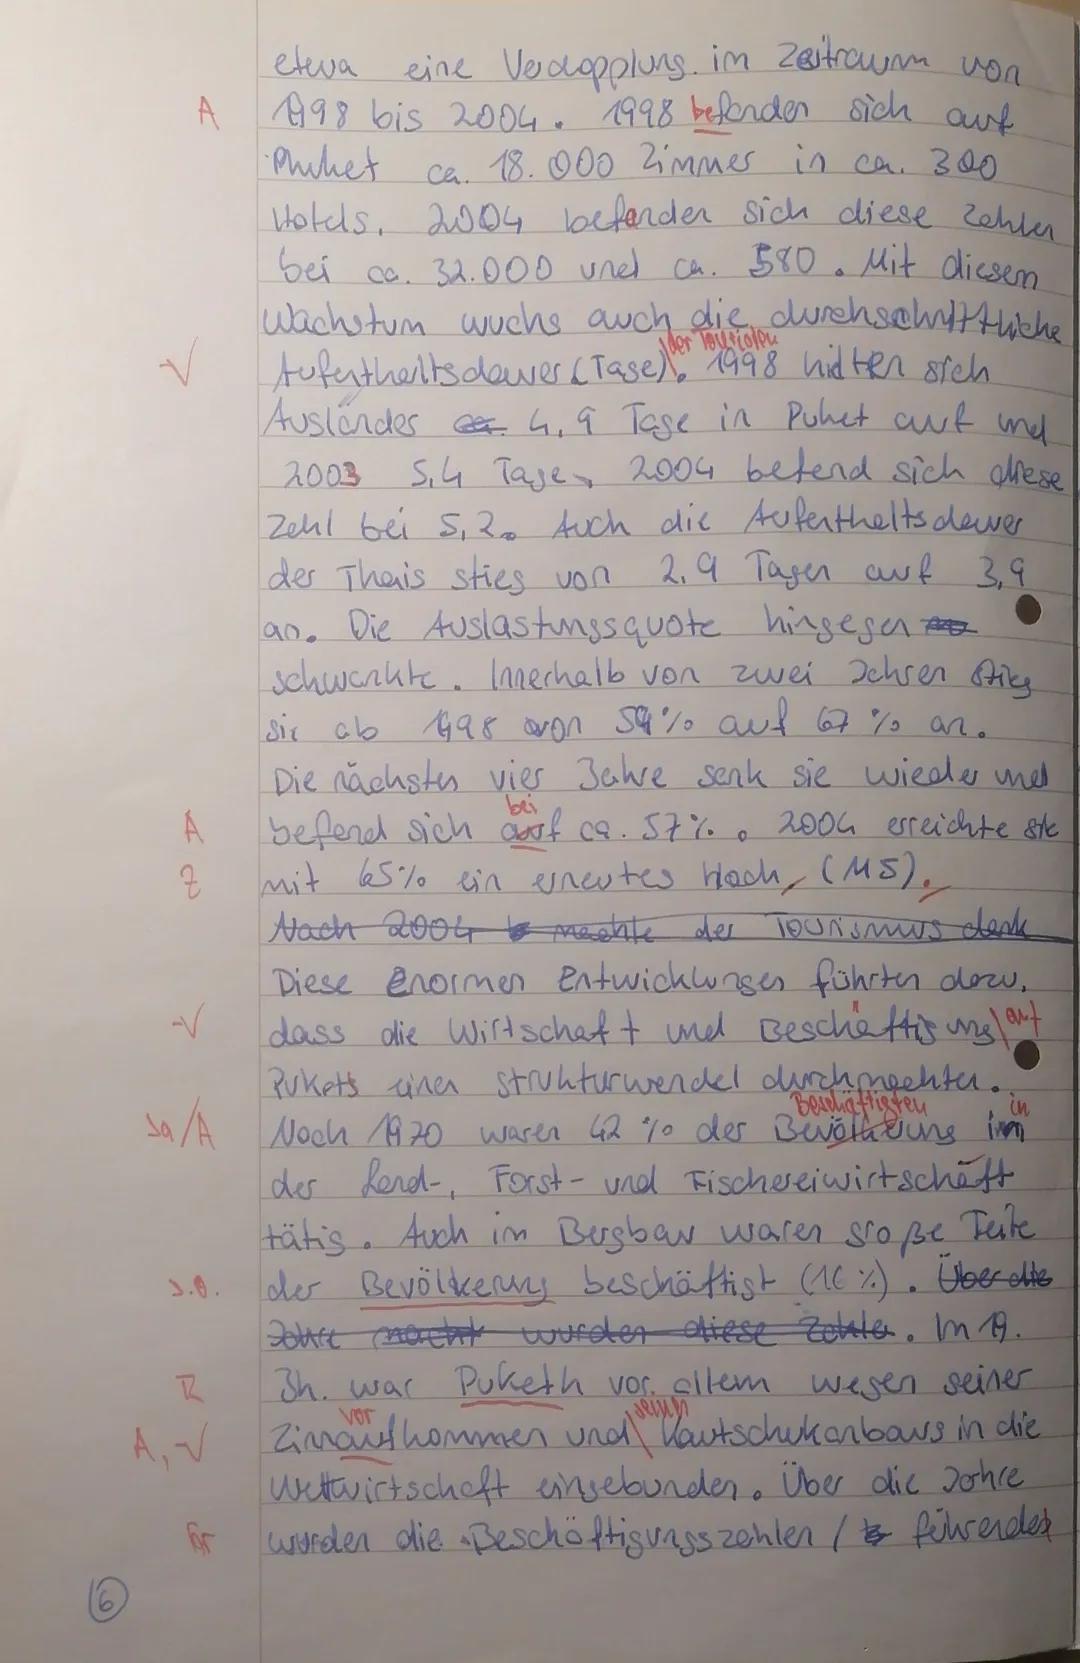 etwa eine Verdopplung im Zeitraum von
A 1998 bis 2004. 1998 befanden sich auf
Phuket ca. 18.000 Zimmer in ca. 300
Hotels. 2004 befanden sich diese Zahlen
bei ca. 32.000 und ca. 580. Mit diesem
Wachstum wuchs auch die durchschnittliche
der Touristen
√ Aufenthaltsdauer (Tage). 1998 hielten sich
Ausländer ca. 4,9 Tage in Puket auf und
2003 5,4 Tage, 2004 befand sich diese
Zahl bei 5,2. Auch die Aufenthaltsdauer
der Thais stieg von 2,9 Tagen auf 3,9
an. Die Auslastungsquote hingegen
schwankte. Innerhalb von zwei Jahren stieg
sie ab 1998 von 54% auf 67% an.
Die nächsten vier Jahre sank sie wieder und
bei
A befand sich auf ca. 57%. 2004 erreichte sie
Z mit 65% ein erneutes Hoch, (M5).
Nach 2004 machte der Tourismus dank
Diese enormen Entwicklungen führten dazu,
√ dass die Wirtschaft und Beschäftigung auf
Pukets einen Strukturwandel durchmachten.
Beschäftigten in
Sa/A Noch 1970 waren 42% der Bevölkerung im
der Land-, Forst- und Fischereiwirtschaft
tätig. Auch im Bergbau waren große Teile
s.o. der Bevölkerung beschäftigt (16%). Über die
Jahre wurden diese Zahle. Im 19.
R Jh. war Puketh vor allem wegen seiner
vor seinen
A, √ Zinnaufkommen und Kautschukanbaus in die
Weltwirtschaft eingebunden. Über die Jahre
Gr wurden die Beschäftigungszahlen / führender
6